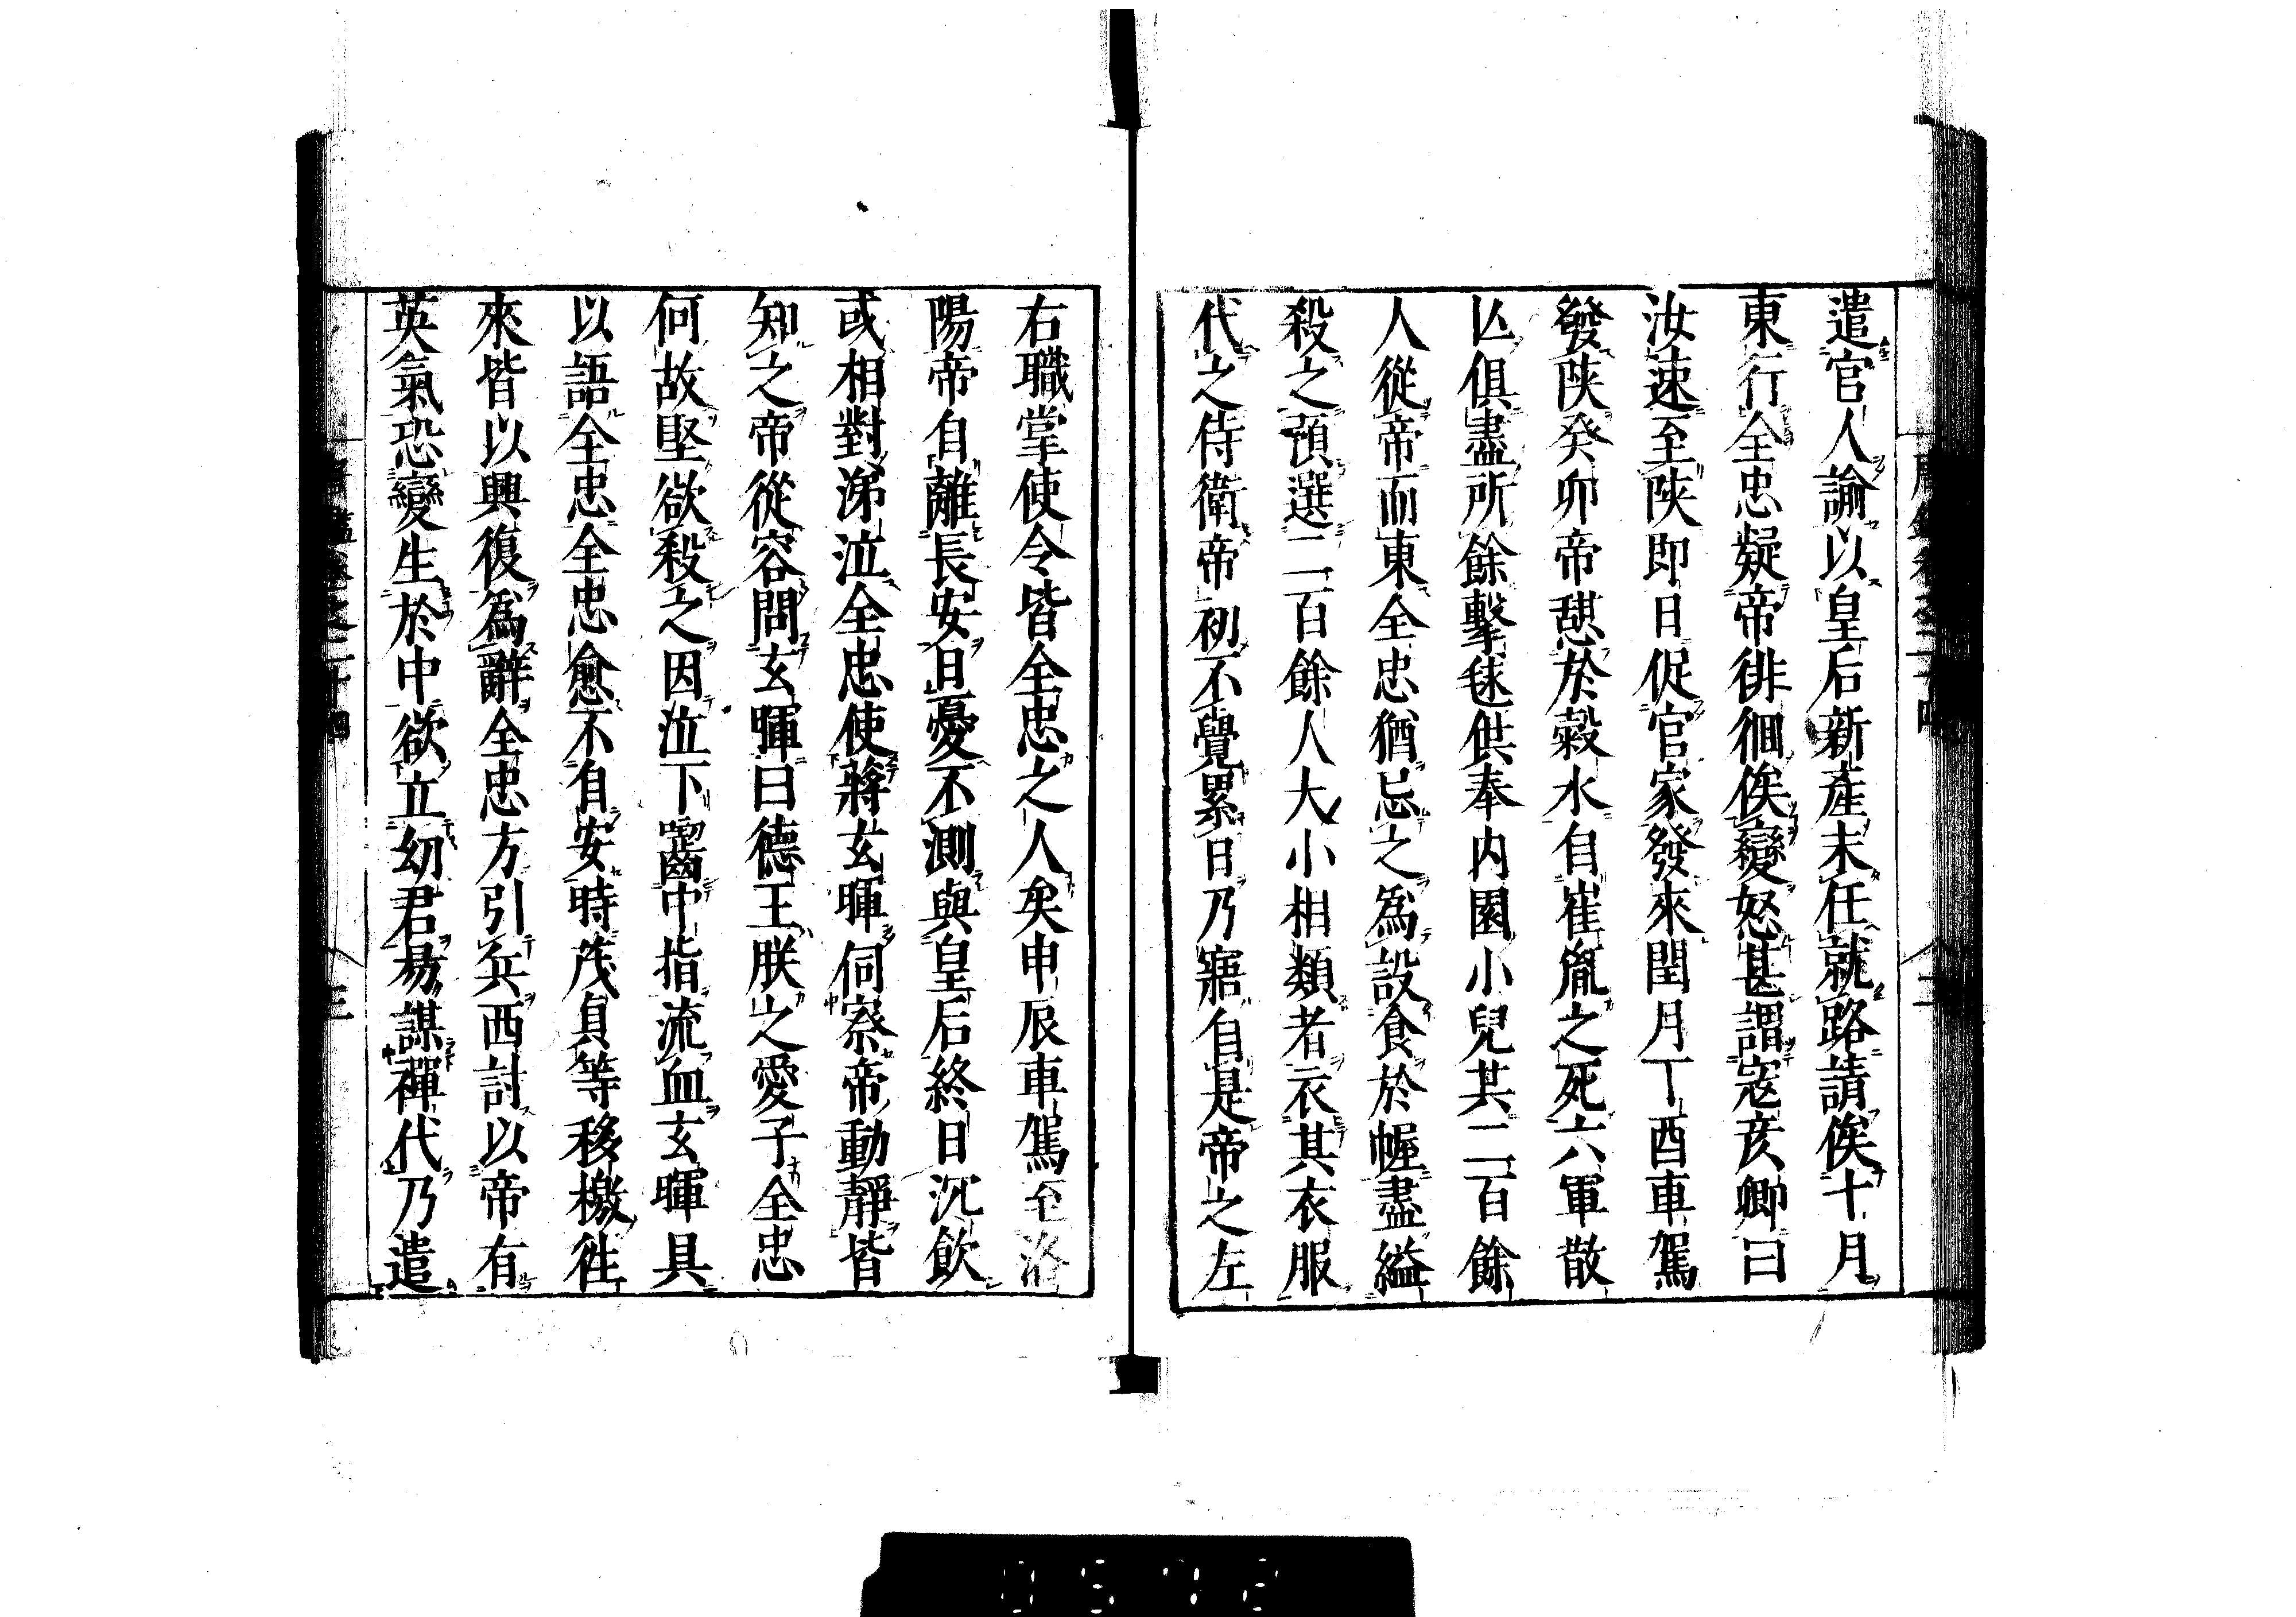 遣官人諭以皇后新產未任就路請俟十月
東行全忠疑帝徘徊俟變怒甚謂寇彦卿曰
汝速至陝即日促官家發來閏月丁酉車駕
發陝癸卯帝憇於穀水自崔胤之死六軍散
亾俱盡所餘擊毬供奉內園小兒共二百餘
人從帝而東全忠猶忌之為設食於幄盡縊
殺之預選二百餘人大小相類者衣其衣服
代之侍衛帝初不覺累日乃寤自是帝之左
右職掌使令皆全忠之人矣甲辰車駕至洛
陽帝自離長安日憂不測與皇后終日沉飲
或相對涕泣全忠使蔣玄暉伺察帝動靜皆
知之帝從容問玄暉曰德王朕之愛子全忠
何故堅欲殺之因泣下齧中指流血玄暉具
以語全忠全忠愈不自安時茂貞等移檄徃
來皆以興復為辭全忠方引兵西討以帝有
英氣恐變生於中欲立幼君易謀禪代乃遣